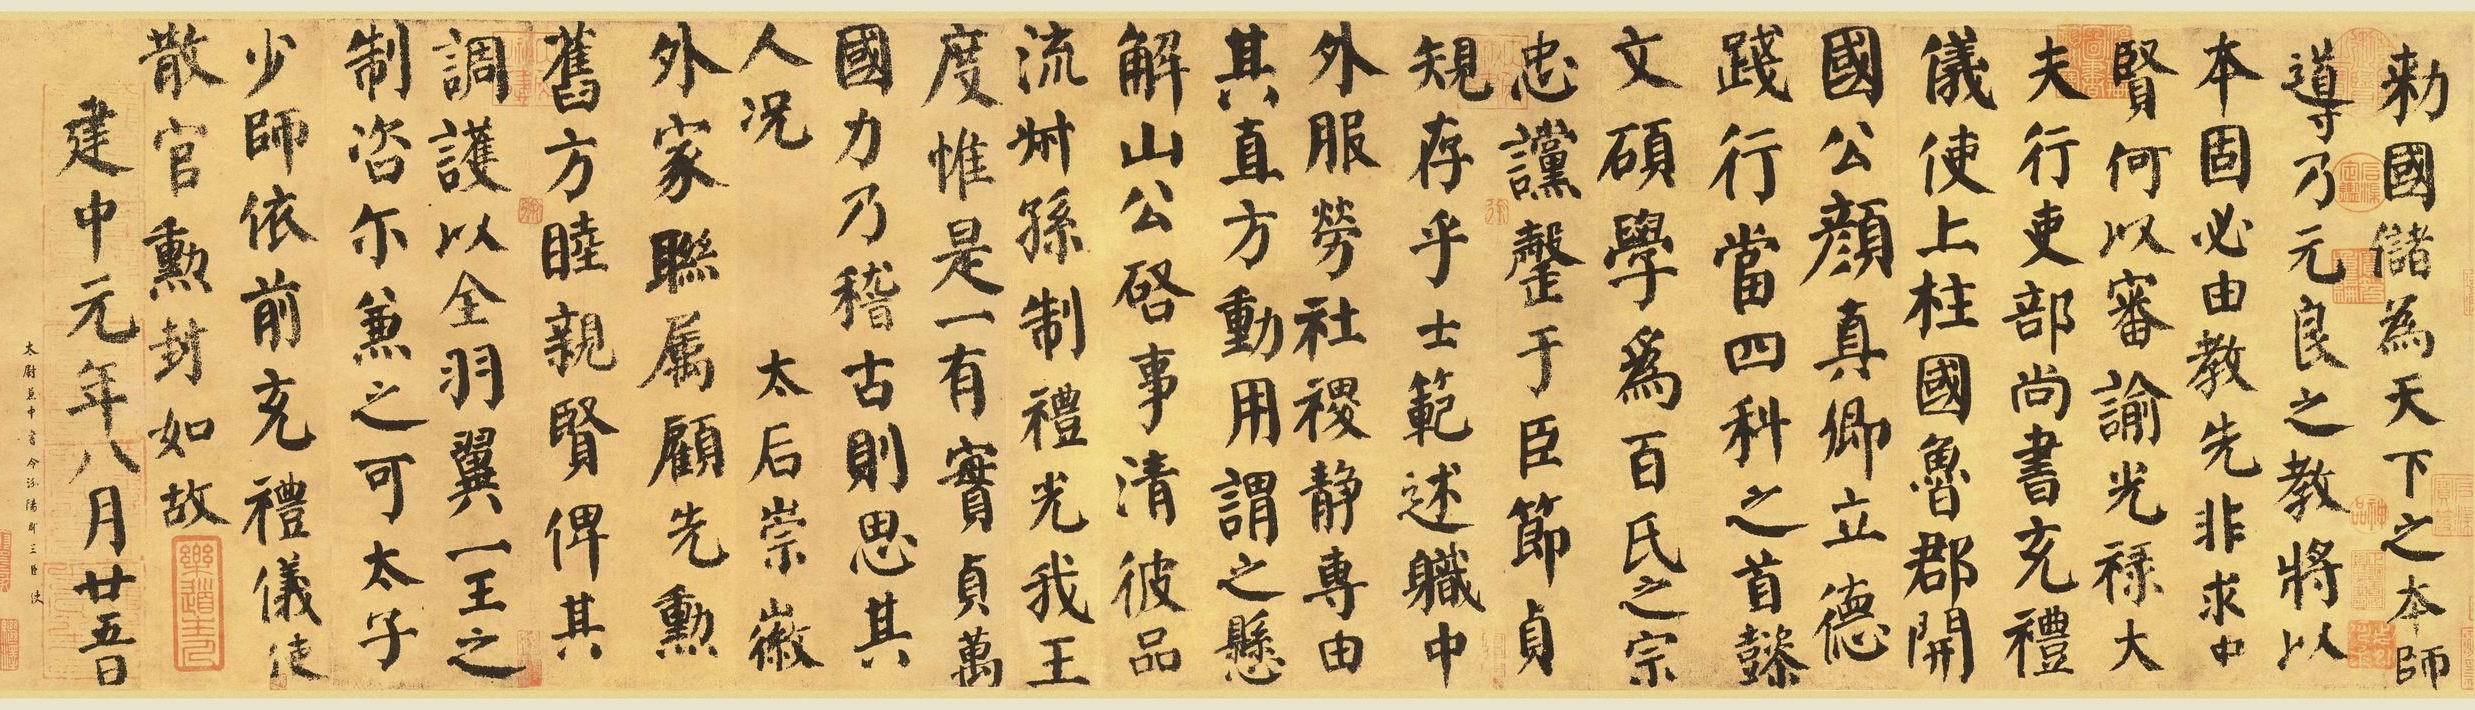 勅國儲為天下之本師
導乃元良之教將以
本固必由教先非求中
賢何以審諭光祿大
夫行吏部尚書充禮
儀使上柱國魯郡開
國公顏真卿立德
踐行當四科之首懿
文碩學為百氏之宗
忠讜罄于臣節貞
規存乎士範述職中
外服勞社稷静專由
其直方動用謂之懸
解山公啓事清彼品
流叔孫制禮光我王
度惟是一有實貞萬
國力乃稽古則思其
人況 太后崇徽
外家聯属顧先勲
舊方睦親賢俾其
調護以全羽翼一王之
制咨尓兼之可太子
少師依前充禮儀使
散官勲封如故
建中元年八月廿五日
太尉兼中書令汾陽郡王臣使
樂道主人